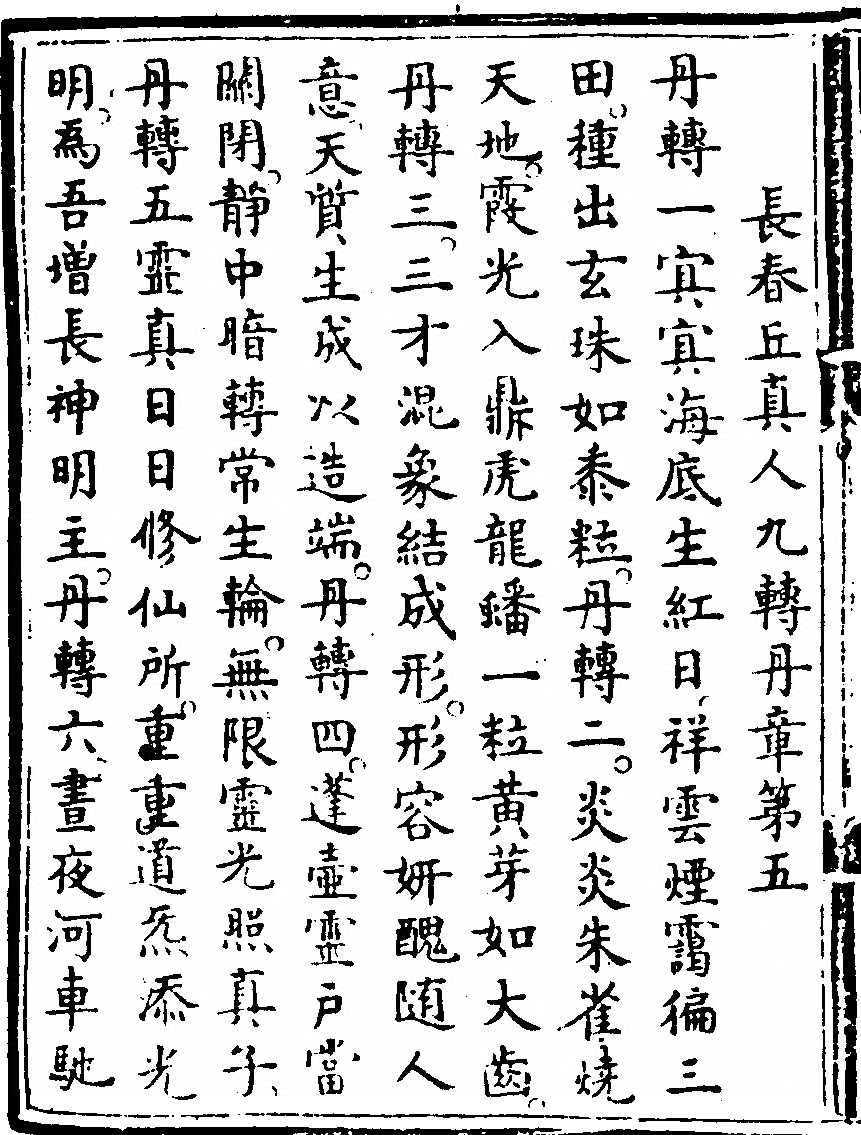 長春丘真人九轉丹章第五
丹轉一。寅寅海底生紅日。祥雲煙靄徧三
田。種出玄珠如黍粒。丹轉二。炎炎朱雀燒
天地。霞光入鼎虎龍蟠一粒黄芽如大齒。
丹轉三。三才混象結成形。形容妍醜随人
意。天質生成以造端。丹轉四。蓬壷靈户當
關閉。静中暗轉常生輪。無限靈光照真子。
丹轉五靈真日日修仙所。重重道炁添光
明。為吾增長神明主。丹轉六。晝夜河車馳